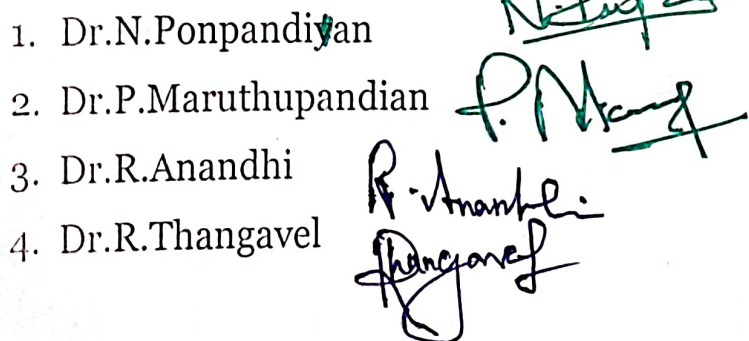 1. Dr.N.Ponpandiyan
2. Dr.P.Maruthupandian
3. Dr.R.Anandhi R. Anandhi
4. Dr.R.Thangavel RThangavel